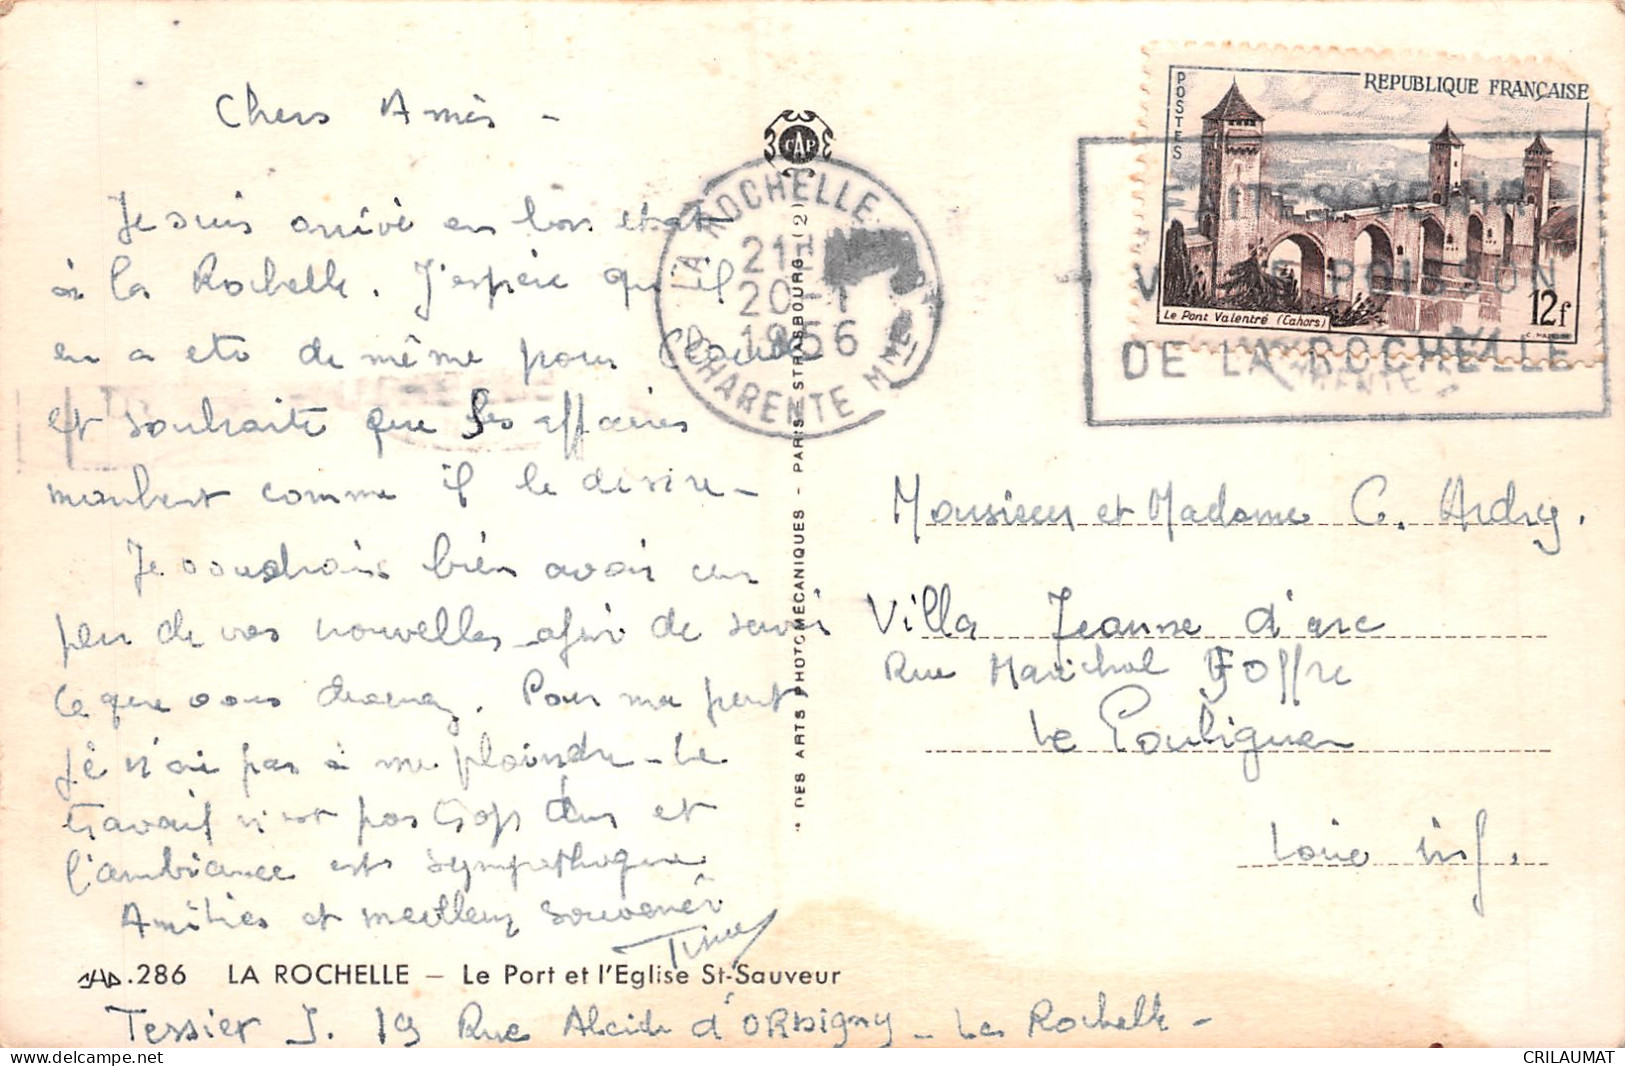 Chers Amis -
Je suis arrivé en bon état
à la Rochelle. J'espère qu'il
en a été de même pour Claude
et souhaite que ses affaires
marchent comme il le désire -
Je voudrais bien avoir un
peu de vos nouvelles afin de savoir
ce que vous devenez. Pour ma part
je n'ai pas à me plaindre - Le
travail n'est pas trop dur et
l'ambiance est sympathique
Amitiés et meilleur souvenir
.286 LA ROCHELLE — Le Port et l'Eglise St-Sauveur
Tessier J. 19 Rue Alcide d'ORbigny - La Rochelle -
CAP
LA ROCHELLE
21H
20-1
1956
CHARENTE MME
DES ARTS PHOTOMÉCANIQUES - PARIS-STRASBOURG (2)
POSTES
REPUBLIQUE FRANÇAISE
Le Pont Valentré (Cahors)
12f
FAITES VENIR
VOTRE POISSON
DE LA ROCHELLE
Monsieur et Madame C. Ardry.
Villa Jeanne d'arc
Rue Maréchal Joffre
Le Pouliguen
Loire inf.
delcampe.net
CRILAUMAT